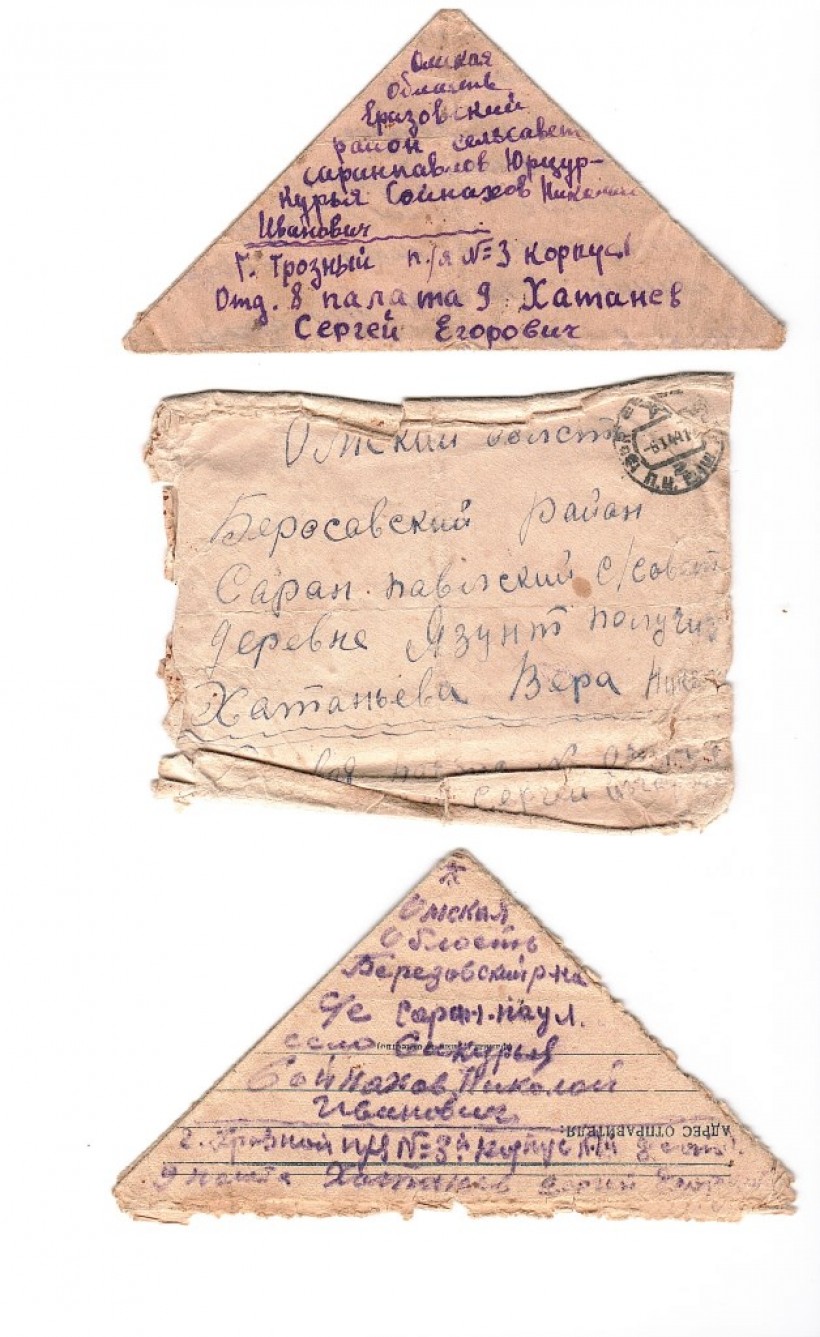 Омская
Область
Еразовский
район сельсавет
саринпавлов Юрцур-
Курья Сойнахов Николай
Иванович
Г. Грозный п/я №3 корпус
Отд. 8 палата 9 Хатанев
Сергей Егорович
Омский область
Беросавский район
Саран. павлский с/совет
деревне Язунт получит
Хатаньева Вера
Сергей
Омская
Область
Березовский р-на
с/с Саран.паул.
село Сикурья
Сойнахов Николой
Иванович
АДРЕС ОТПРАВИТЕЛЯ:
г. Грозной п/я №3 корпус
9 Хатанев Сергей